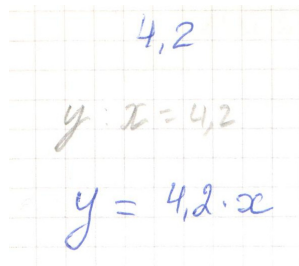 4,2
y : x = 4,2
y = 4,2 · x